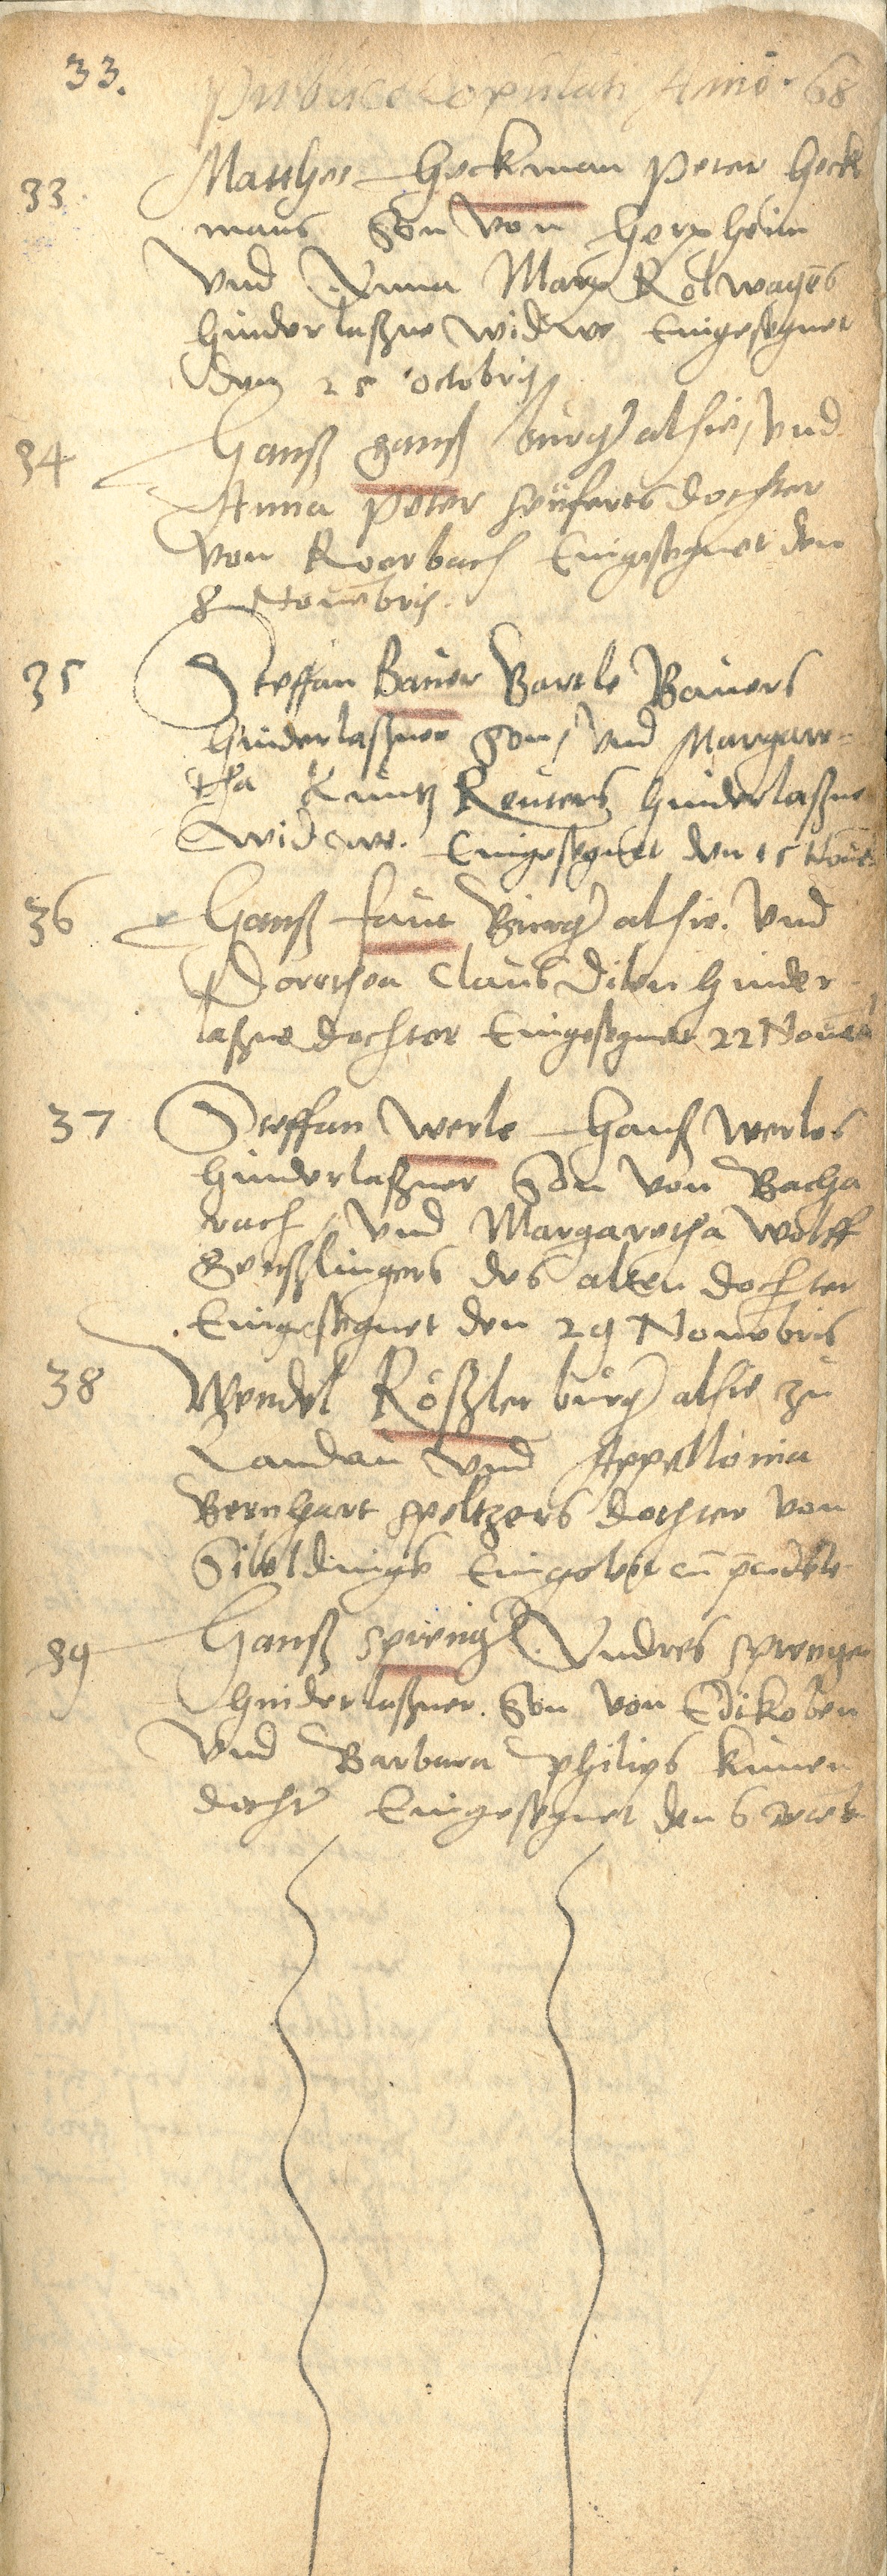 33.
Publice Copulati Anno. 68
33 Matthes Heckman Peter Heck
mans Son von Herxheim
Vnd Anna Marx Rolwagēs
hinderlaßne Widwe Eingesegnet
den 25 octobris
34 Hanß Hanß burger alhie, Vnd
Anna Peter Seüferts dochter
Von Roerbach Eingesegnet den
8 Nouēbris.
35 Steffan Bauer Bartle Bauers
hinderlaßner Son, Vnd Margare-
tha Kuntz Reuters hinderlaßne
Widwe. Eingesegnet den 15 Nouē
36 Hanß Faut Burger alhie. Vnd
Dorethea Claus Dilen hinder-
laßne dochter Eingesegnet 22 Nouēb
37 Steffan Werle Hanß Werles
hinderlaßner Son Von Bacha
rach, Vnd Margaretha Wolff
Genßlingers des alten dochter
Eingesegnet den 29 Nouēbris
38 Wendel Rößler burger alhie zu
Landau Vnd Appellonia
Bernhart Speltzers dochter Von
Sibeldinge
39 Hanß Sprenger. Andres Sprenger
hinderlaßner. Son Von Edikoben
Vnd Barbara Philips
dochter Eingesegnet den 6